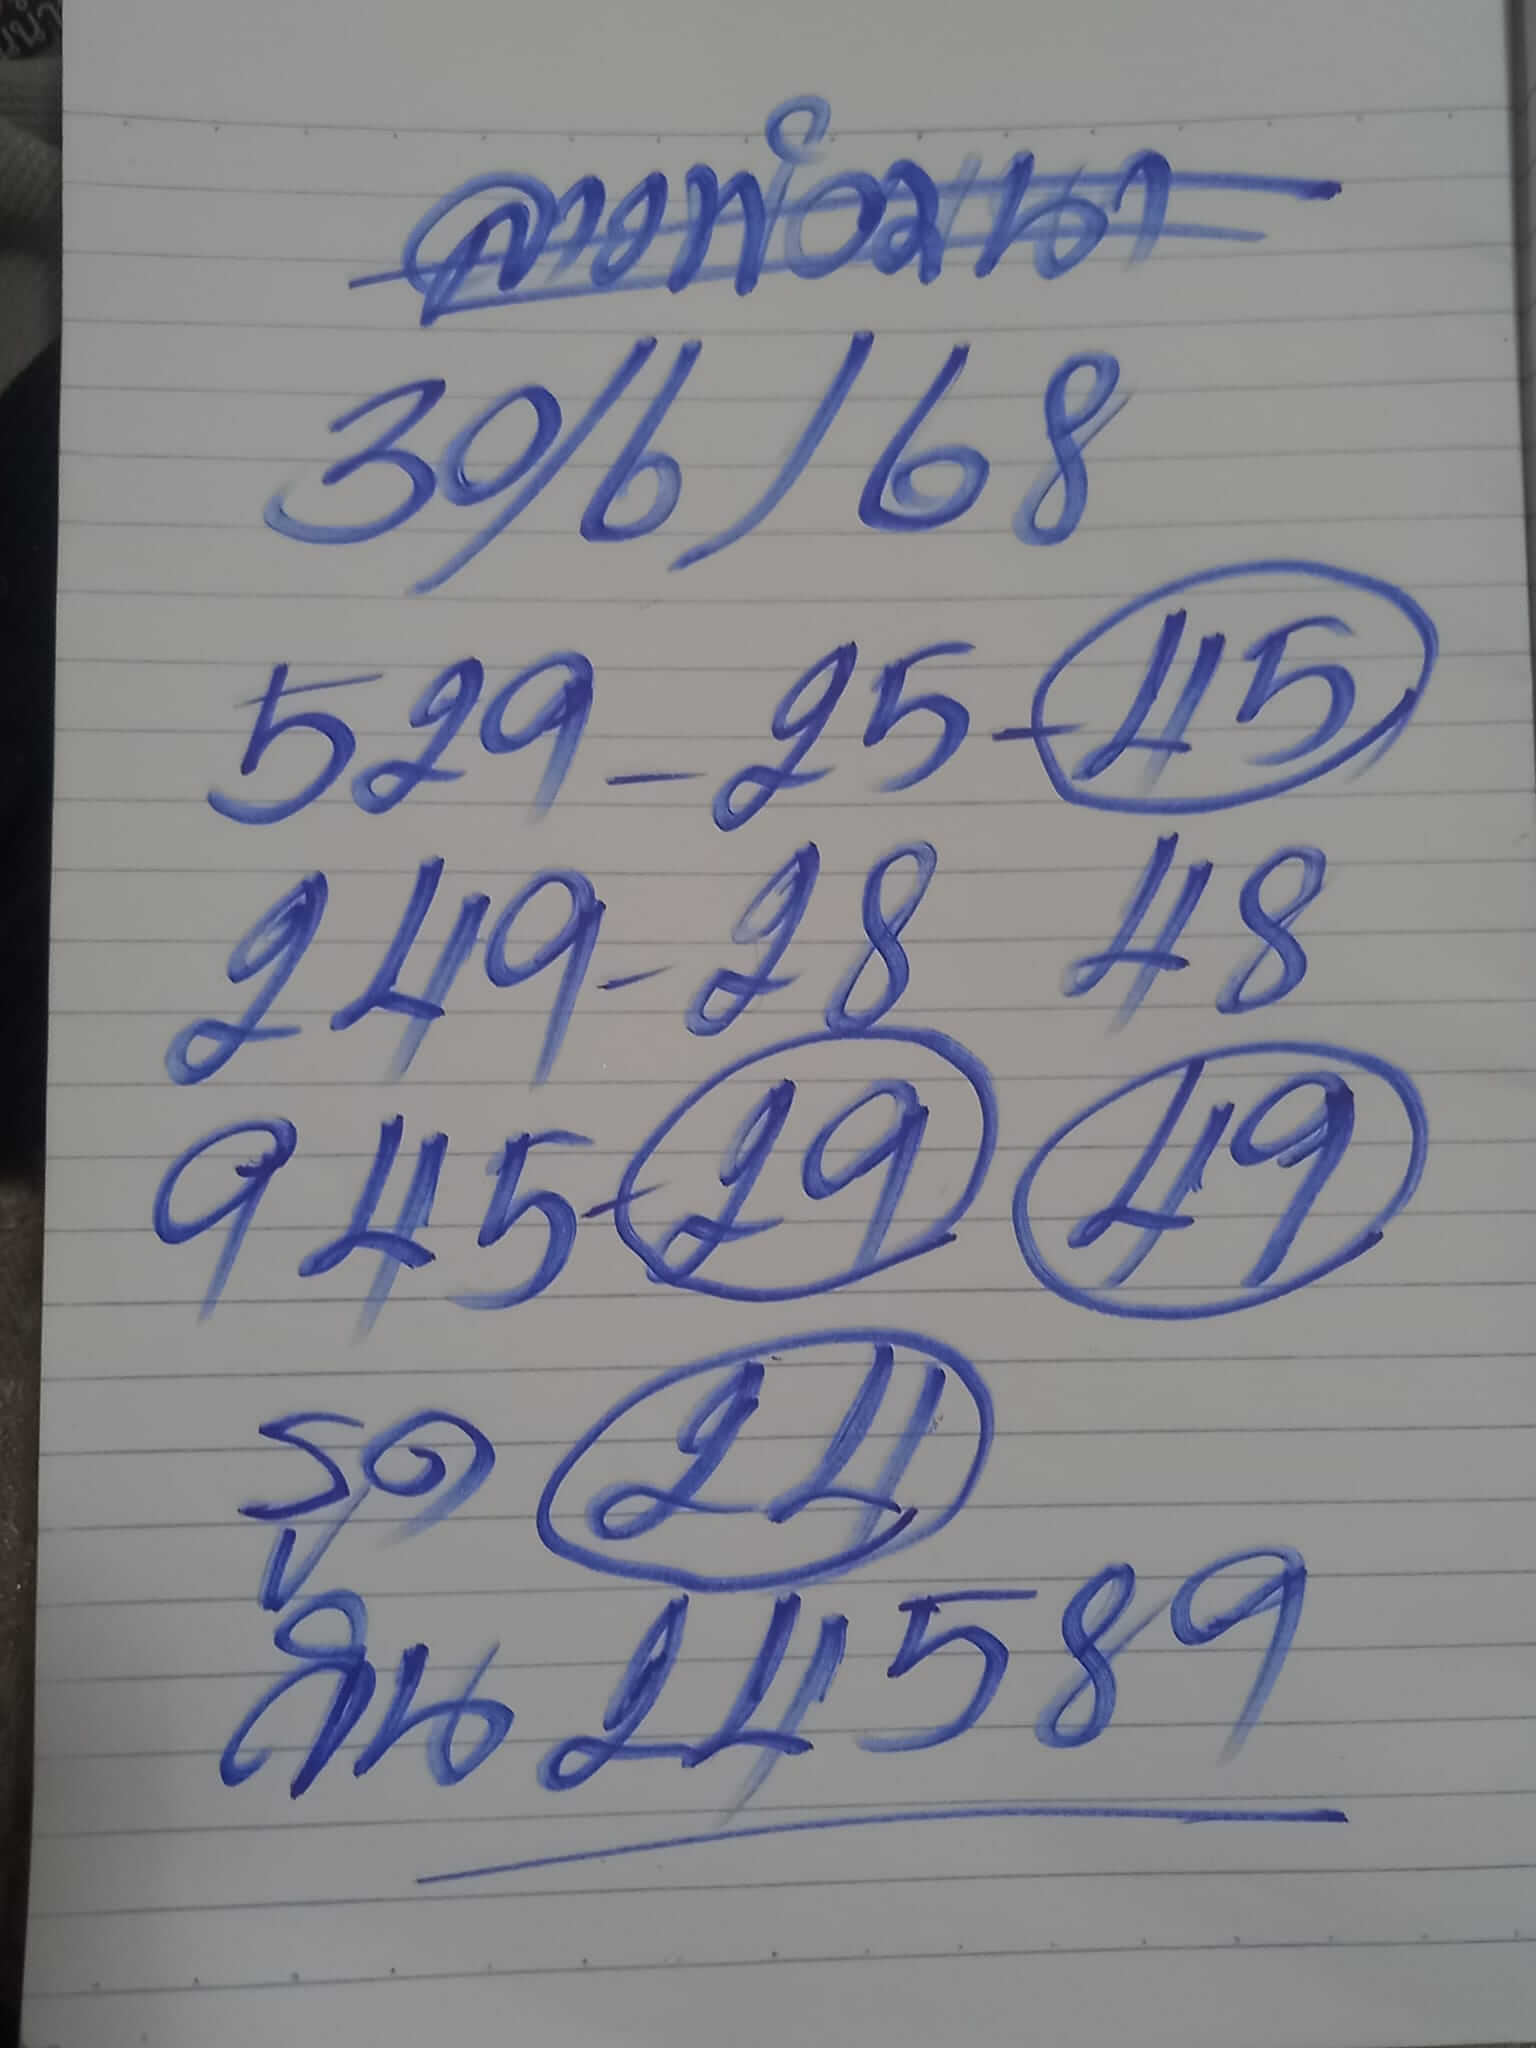 ลาวพัฒนา
30/6/68
529-25-45
249-28 48
945-29 49
รูด 24
วิน 24589